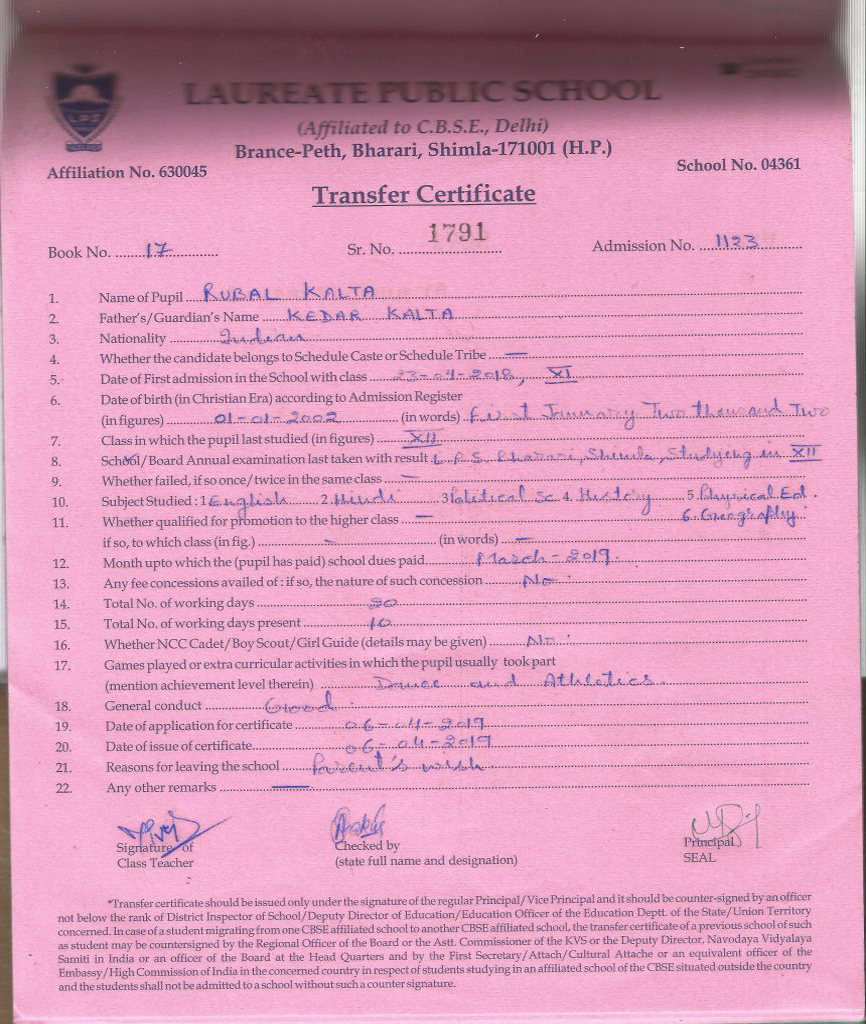 L.P.S
LAUREATE PUBLIC SCHOOL
(Affiliated to C.B.S.E., Delhi)
Brance-Peth, Bharari, Shimla-171001 (H.P.)
Affiliation No. 630045 School No. 04361
Transfer Certificate
Book No. 17 Sr. No. 1791 Admission No. 1123
1. Name of Pupil RUBAL KALTA
2. Father's/Guardian's Name KEDAR KALTA
3. Nationality Indian
4. Whether the candidate belongs to Schedule Caste or Schedule Tribe —
5. Date of First admission in the School with class 23-04-2018, XI
6. Date of birth (in Christian Era) according to Admission Register
(in figures) 01-01-2002 (in words) First January Two thousand Two
7. Class in which the pupil last studied (in figures) XII
8. School/Board Annual examination last taken with result L.P.S. Bharari, Shimla, Studying in XII
9. Whether failed, if so once/twice in the same class —
10. Subject Studied : 1 English 2. Hindi 3 Political Sc. 4. History 5. Physical Ed.
6. Geography
11. Whether qualified for promotion to the higher class —
if so, to which class (in fig.) — (in words) —
12. Month upto which the (pupil has paid) school dues paid March - 2019.
13. Any fee concessions availed of : if so, the nature of such concession No
14. Total No. of working days
15. Total No. of working days present 10
16. Whether NCC Cadet/Boy Scout/Girl Guide (details may be given) No
17. Games played or extra curricular activities in which the pupil usually took part
(mention achievement level therein) Dance and Athletics.
18. General conduct Good
19. Date of application for certificate 06-04-2019
20. Date of issue of certificate 06-04-2019
21. Reasons for leaving the school Parent's wish
22. Any other remarks —
Signature of Checked by Principal
Class Teacher (state full name and designation) SEAL
*Transfer certificate should be issued only under the signature of the regular Principal/Vice Principal and it should be counter-signed by an officer
not below the rank of District Inspector of School/Deputy Director of Education/Education Officer of the Education Deptt. of the State/Union Territory
concerned. In case of a student migrating from one CBSE affiliated school to another CBSE affiliated school, the transfer certificate of a previous school of such
as student may be countersigned by the Regional Officer of the Board or the Astt. Commissioner of the KVS or the Deputy Director, Navodaya Vidyalaya
Samiti in India or an officer of the Board at the Head Quarters and by the First Secretary/Attach/Cultural Attache or an equivalent officer of the
Embassy/High Commission of India in the concerned country in respect of students studying in an affiliated school of the CBSE situated outside the country
and the students shall not be admitted to a school without such a counter signature.